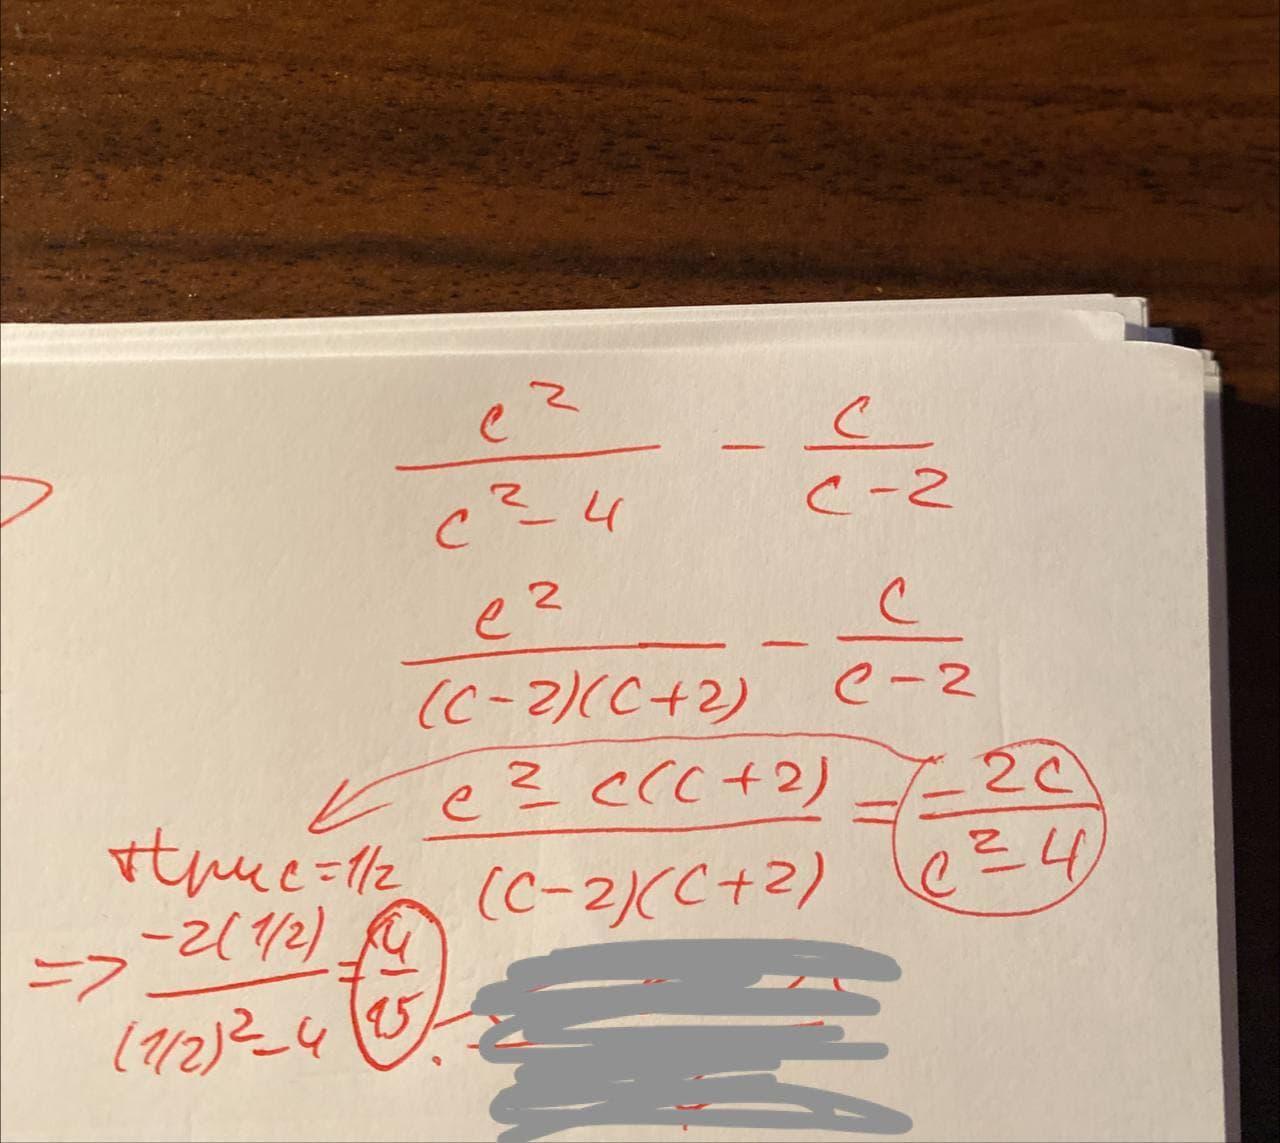 c²/(c²-4) - c/(c-2)
c²/((c-2)(c+2)) - c/(c-2)
(c²-c(c+2))/((c-2)(c+2)) = -2c/(c²-4)
при c=1/2
=> -2(1/2)/((1/2)²-4) = 4/15